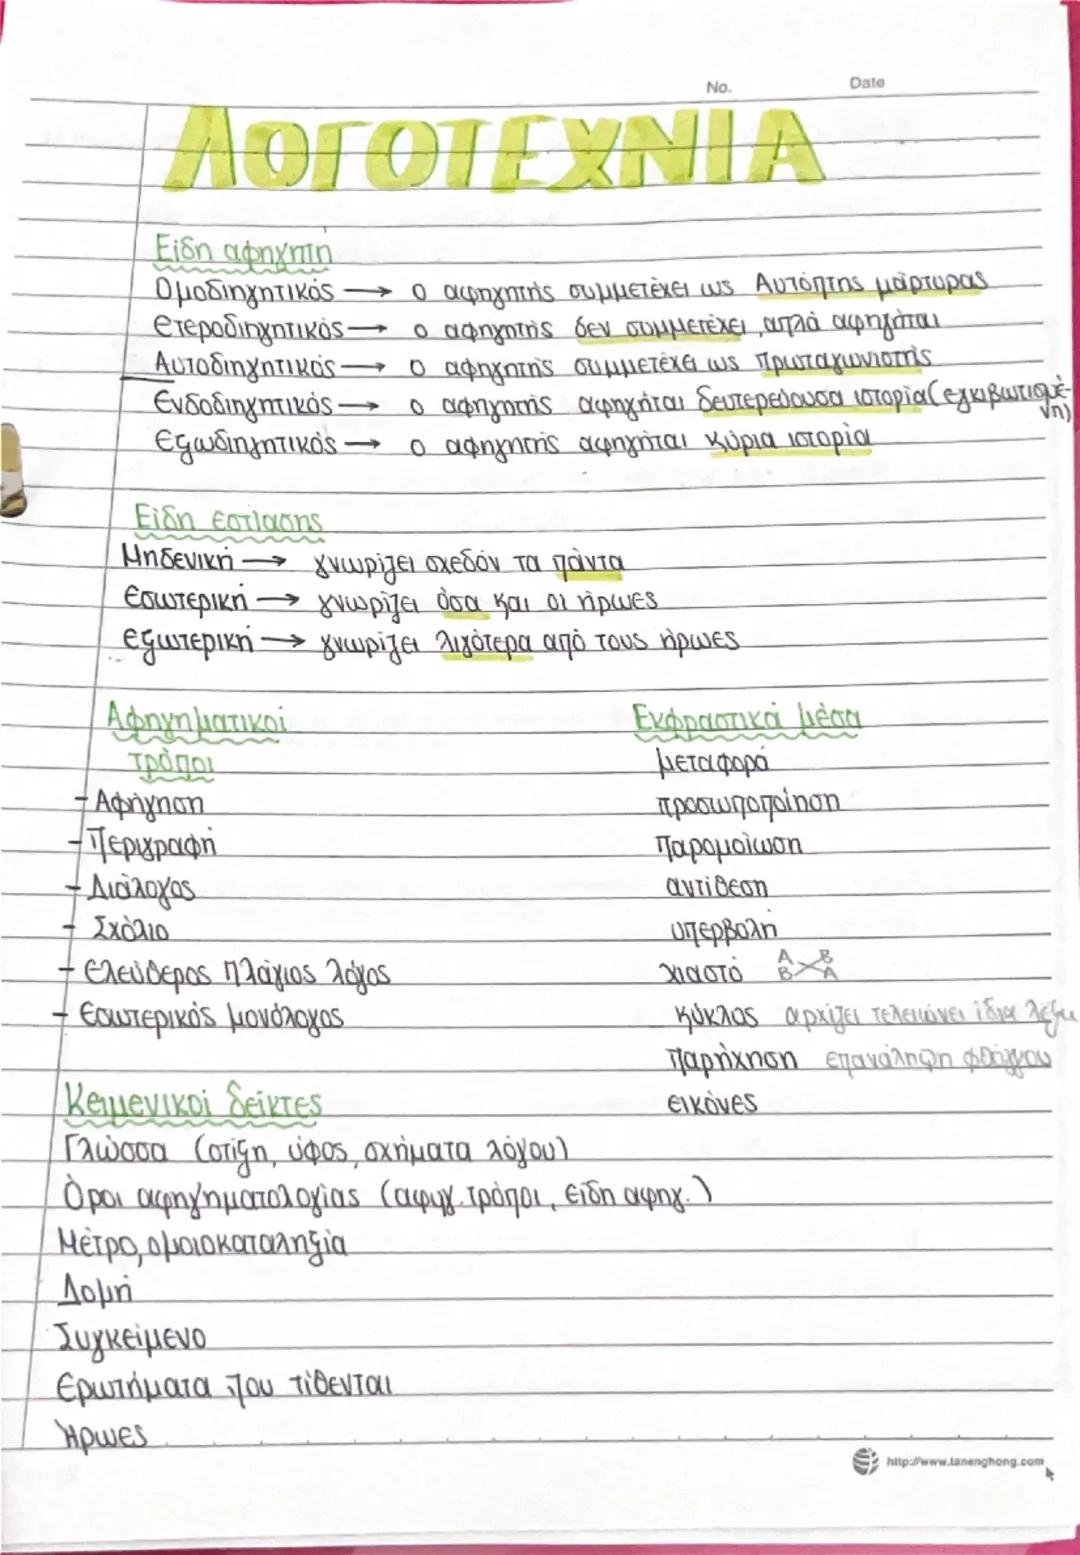 No. Date
ΛΟΓΟΤΕΧΝΙΑ
Είδη αφηγητή
Ομοδιηγητικός → ο αφηγητής συμμετέχει ως Αυτόπτης μάρτυρας
Ετεροδιηγητικός → ο αφηγητής δεν συμμετέχει, απλά αφηγήται
Αυτοδιηγητικός → ο αφηγητής συμμετέχει ως πρωταγωνιστής
Ενδοδιηγητικός → ο αφηγητής αφηγήται δευτερεύουσα ιστορία (εγκιβωτισμένη)
Εξωδιηγητικός → ο αφηγητής αφηγήται κύρια ιστορία
Είδη εστίασης
Μηδενική → γνωρίζει σχεδόν τα πάντα
Εσωτερική → γνωρίζει όσα και οι ήρωες
εξωτερική → γνωρίζει λιγότερα από τους ήρωες
Αφηγηματικοί
τρόποι
- Αφήγηση
- Περιγραφή
- Διάλογος
- Σχόλιο
- Ελεύθερος πλάγιος λόγος
- Εσωτερικός μονόλογος
Εκφραστικά μέσα
μεταφορά
προσωποποίηση
παρομοίωση
αντίθεση
υπερβολή
χιαστό Α Β
Β Α
κύκλος αρχίζει τελειώνει ίδια λέξη
παρήχηση επανάληψη φθόγγου
εικόνες
Κειμενικοί δείκτες
Γλώσσα (στίξη, ύφος, σχήματα λόγου)
Όροι αφηγηματολογίας (αφηγ. τρόποι, είδη αφηγ.)
Μέτρο, ομοιοκαταληξία
Δομή
Συγκείμενο
Ερωτήματα που τίθενται
Ήρωες
http://www.tanenghong.com